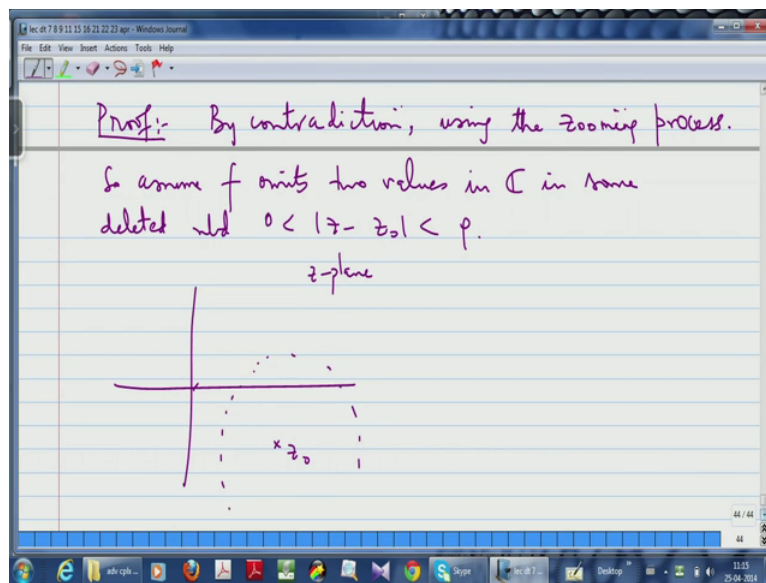 lec dt 7 8 9 11 15 16 21 22 23 apr - Windows Journal
File Edit View Insert Actions Tools Help
Proof:- By contradiction, using the zooming process.
So assume f omits two values in ℂ in some
deleted nbd 0 < |z - z₀| < ρ.
z-plane
× z₀
44 / 44
44
adv cplx ...
Skype
lec dt 7 ...
Desktop
11:15
25-04-2014